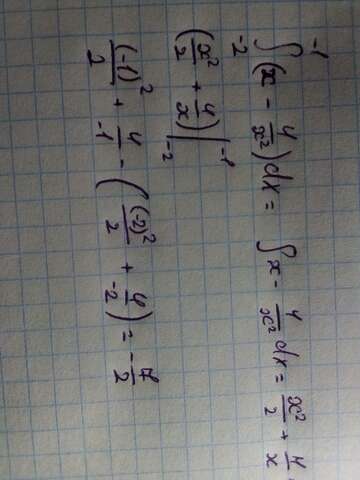 ∫_{-2}^{-1} (x - 4/x²)dx = ∫x - 4/x² dx = x²/2 + 4/x
(x²/2 + 4/x)|_{-2}^{-1}
(-1)²/2 + 4/-1 - ((-2)²/2 + 4/-2) = -7/2